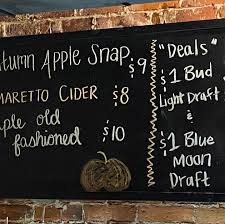 utumn Apple Snap $9
maretto Cider $8
ple old
fashioned $10
"Deals"
$1 Bud
Light Draft &
$1 Blue
Moon
Draft